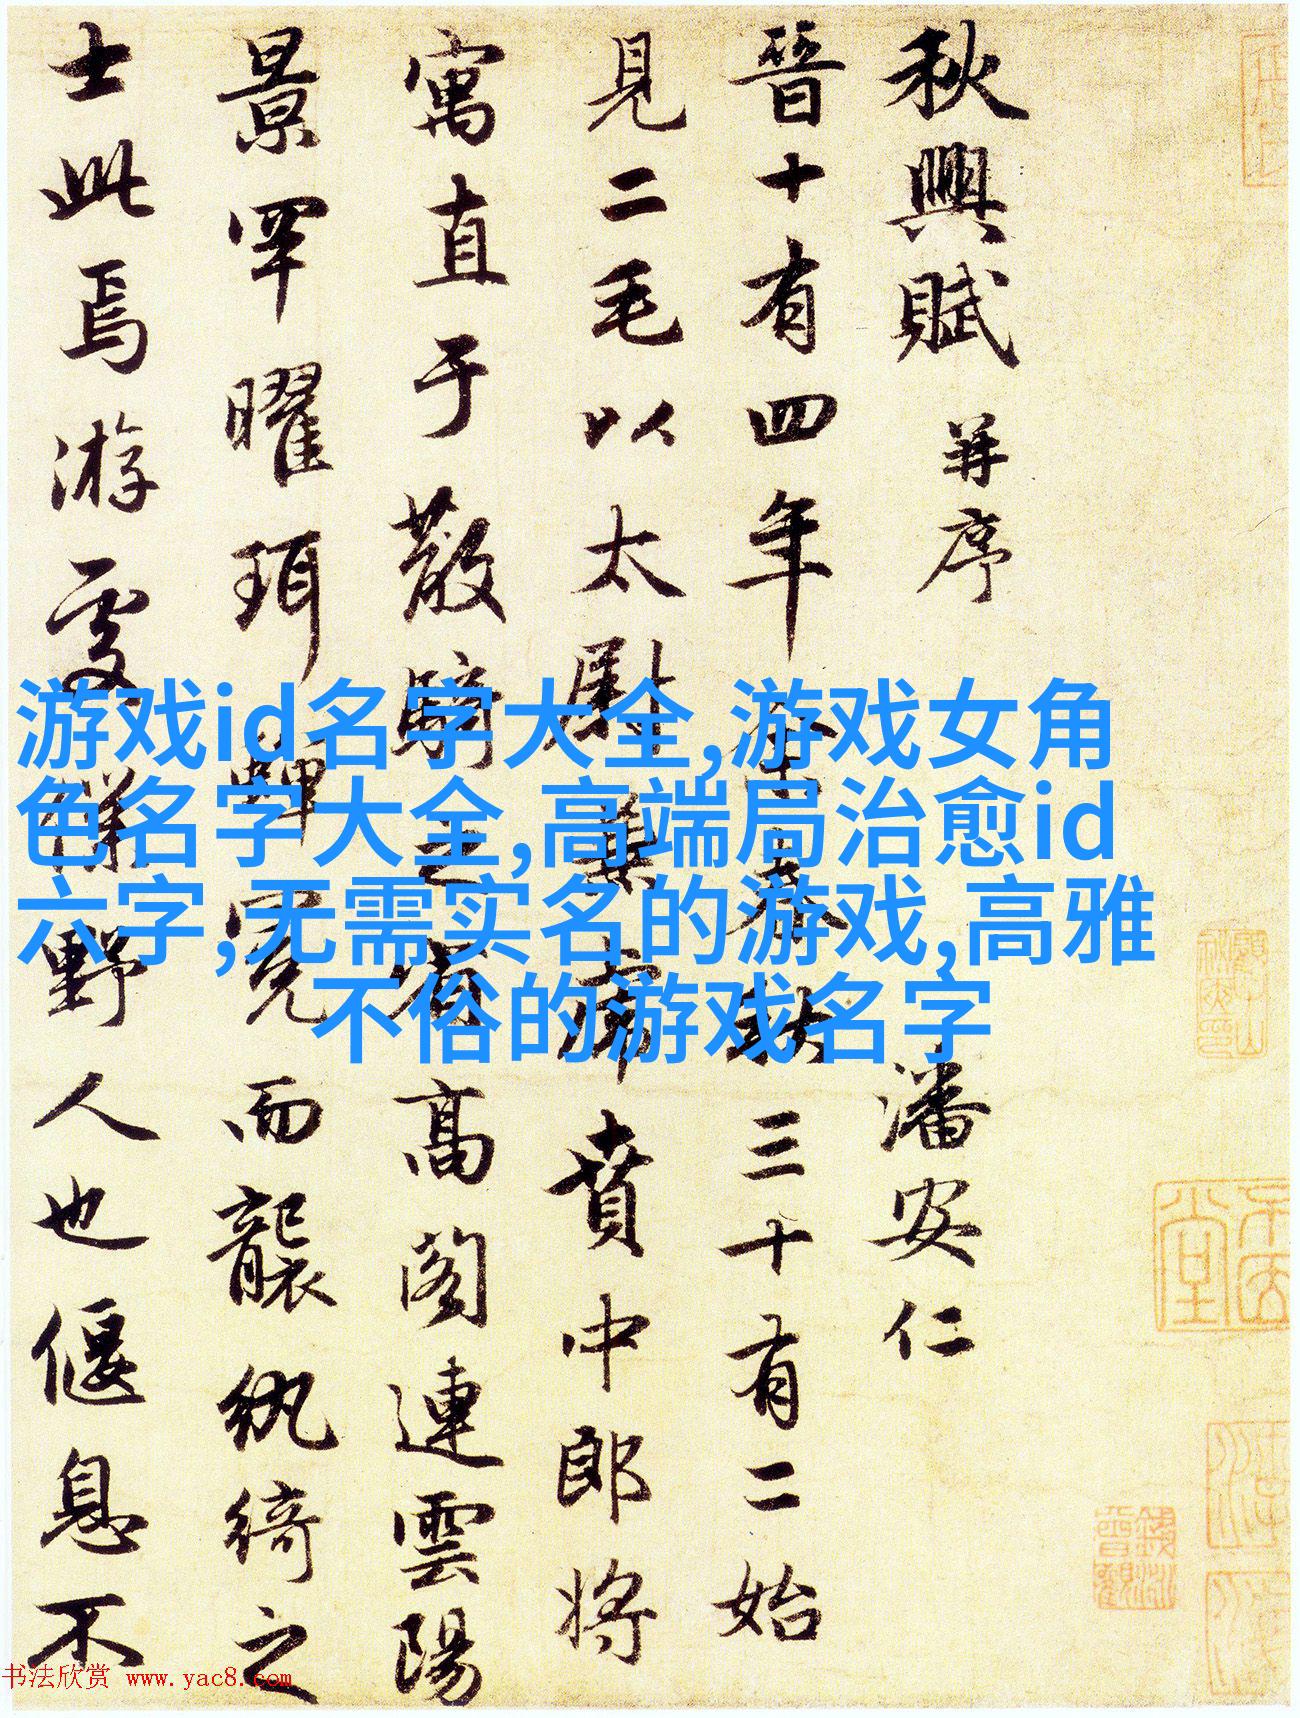 秋興賦 并序 潘安仁
晉十有四年余春秋三十有二始
見二毛以太尉兼虎賁中郎将
寓直于散騎之省高閣連雲陽
景罕曜珥蟬冕而襲紈綺之
士此焉游處僕野人也偃息不
游戏id名字大全,游戏女角
色名字大全,高端局治愈id
六字,无需实名的游戏,高雅
不俗的游戏名字
书法欣赏 www.yac8.com